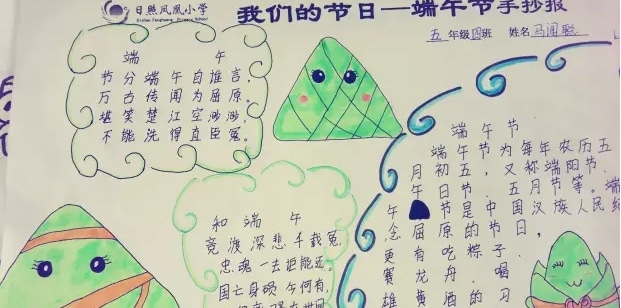 日照凤凰小学
我们的节日—端午节手抄报
五年级四班 姓名
端 午
节分端午自谁言，
万古传闻为屈原。
堪笑楚江空渺渺，
不能洗得直臣冤。
和端午
竞渡深悲千载冤，
忠魂一去讵能还。
国亡身殒今何有，
端午节
端午节为每年农历五
月初五，又称端阳节、
午日节、五月节等。端
午节是中国汉族人民纪
念屈原的节日，
更有吃粽子、
赛龙舟、喝
雄黄酒的习